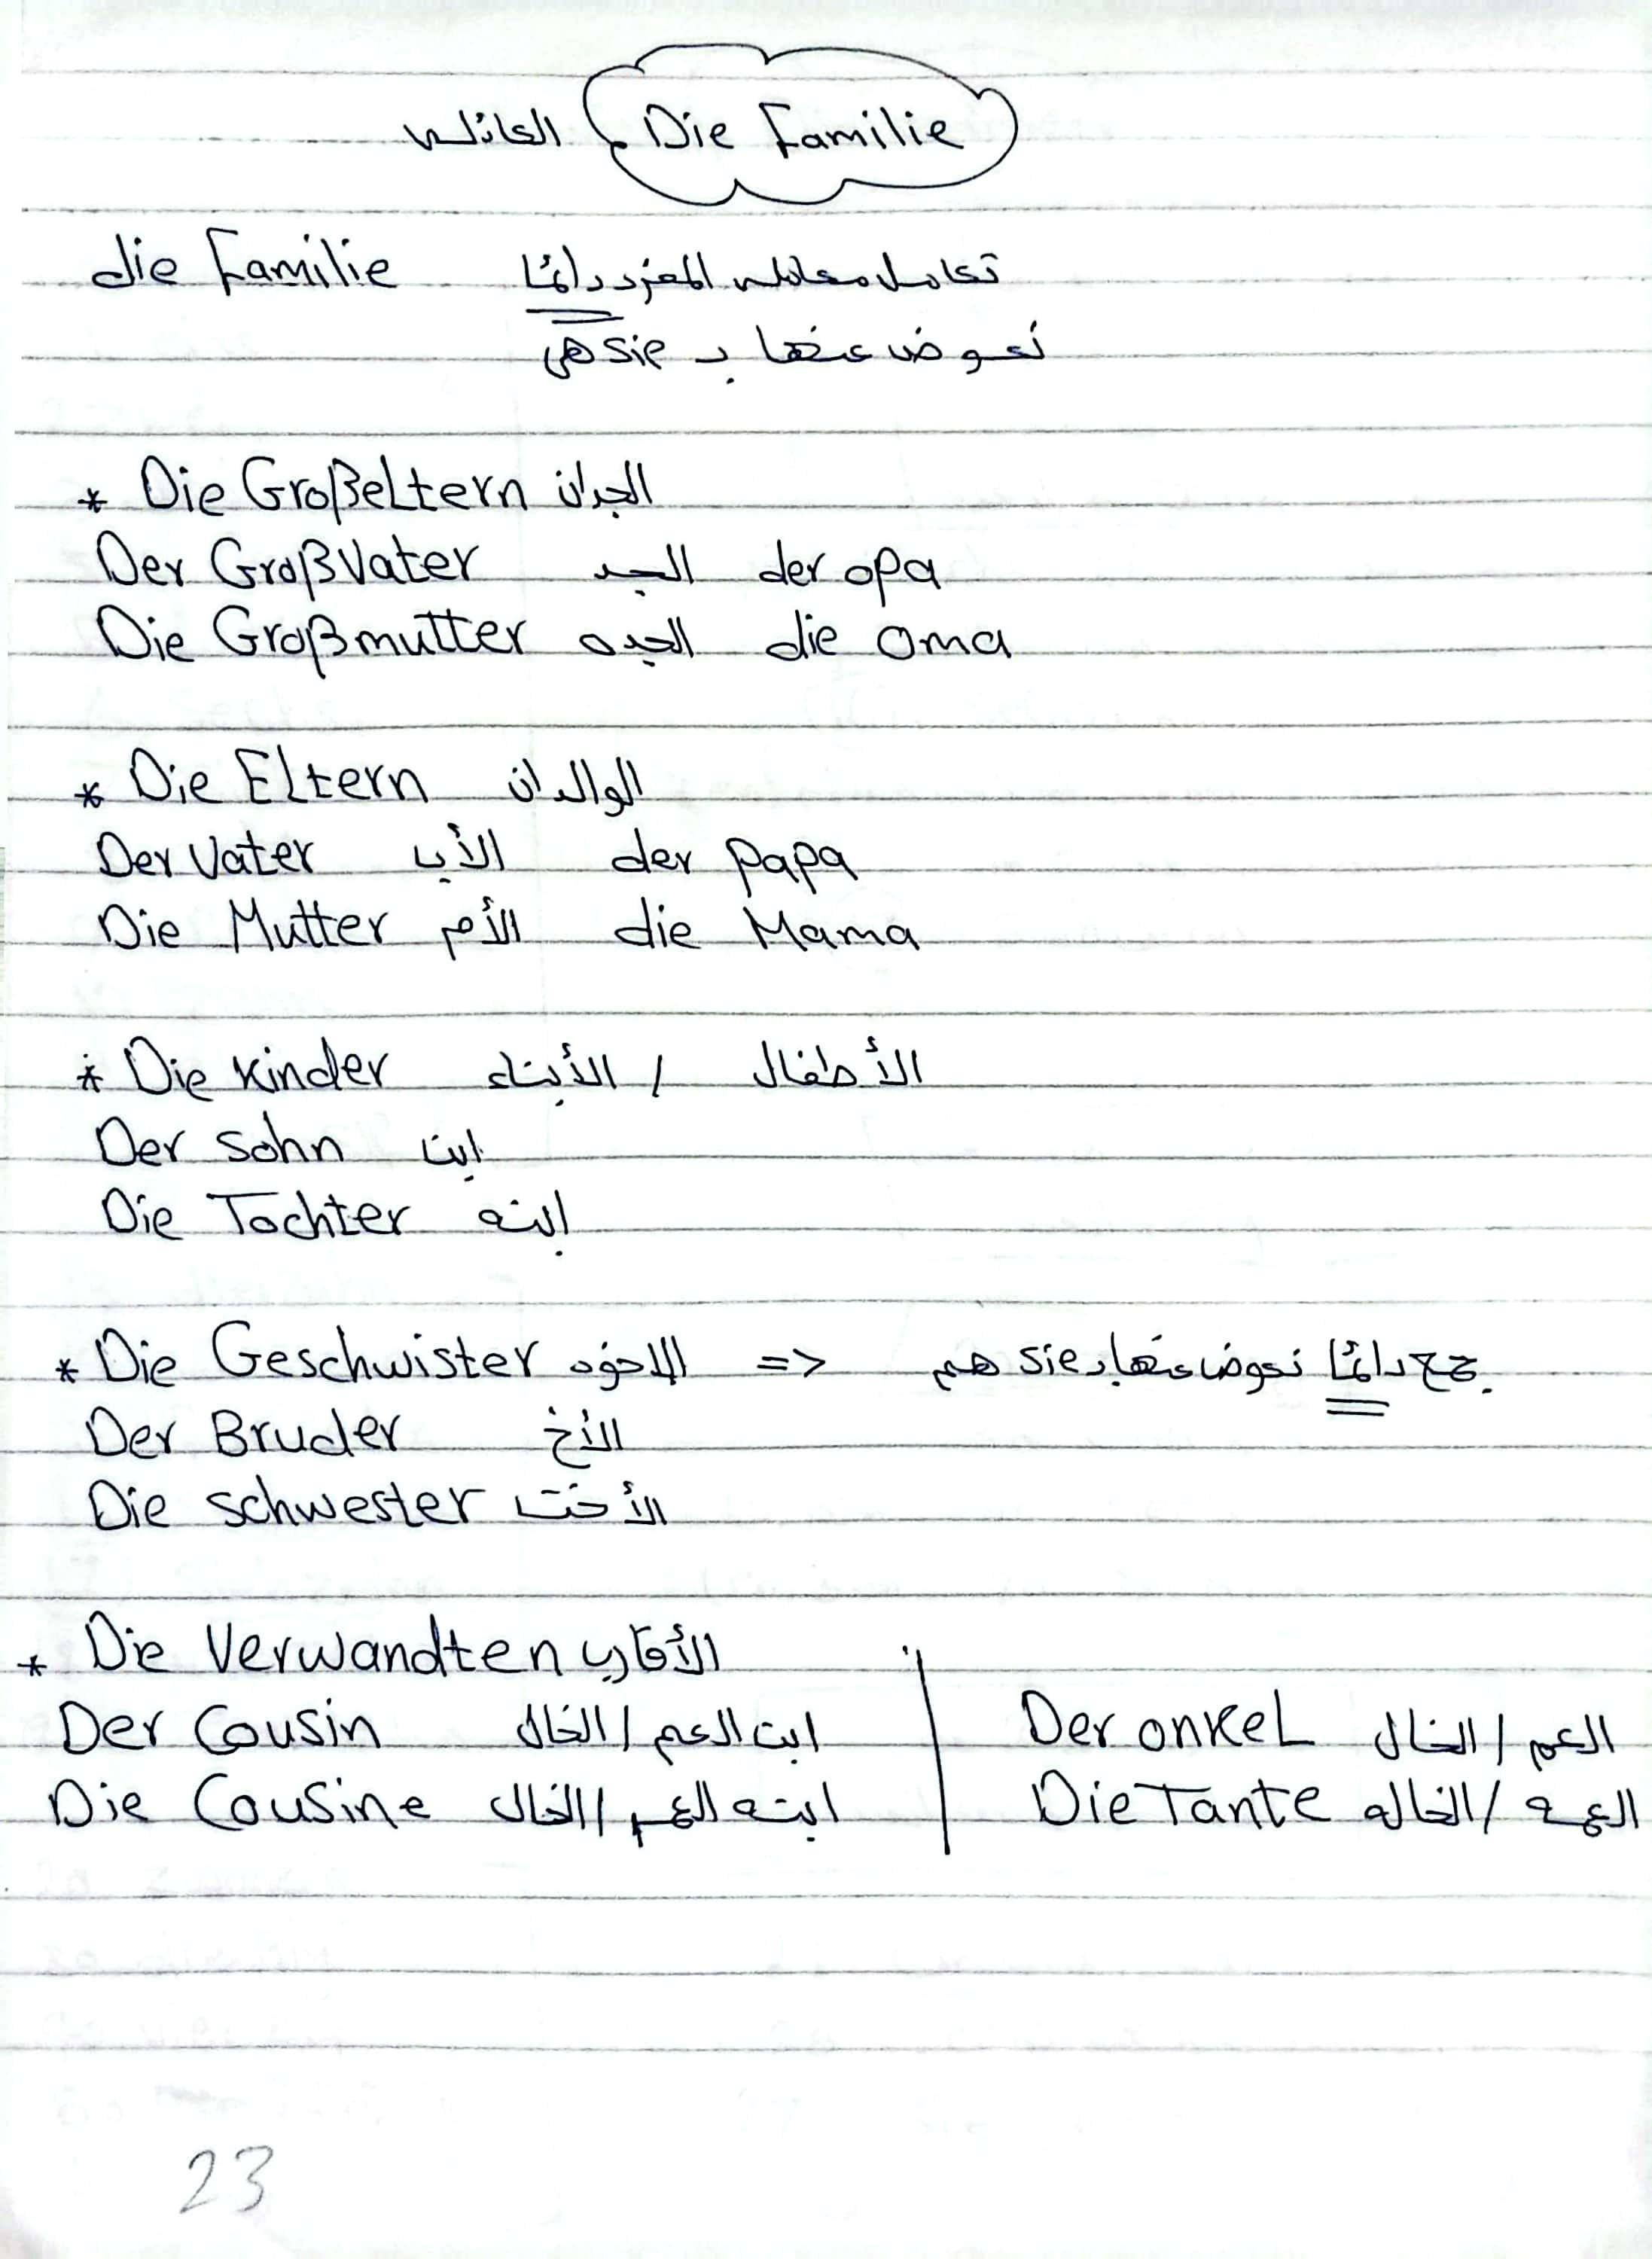 Die Familie العائله
die Familie تعامل معامله المفرد دائمًا
نعوض عنها بـ sie هى
* Die Großeltern الجدان
Der Großvater الجد der opa
Die Großmutter الجده die oma
* Die Eltern الوالدان
Der Vater الأب der papa
Die Mutter الأم die Mama
* Die kinder الأبناء / الأطفال
Der sohn ابن
Die Tochter ابنه
* Die Geschwister الإخوه => جمع دائمًا نعوض عنها بـ sie هم
Der Bruder الأخ
Die schwester الأخت
* Die Verwandten الأقارب
Der Cousin ابن العم / الخال
Die Cousine ابنه العم / الخال
Der onkel العم / الخال
Die Tante العمه / الخاله
23